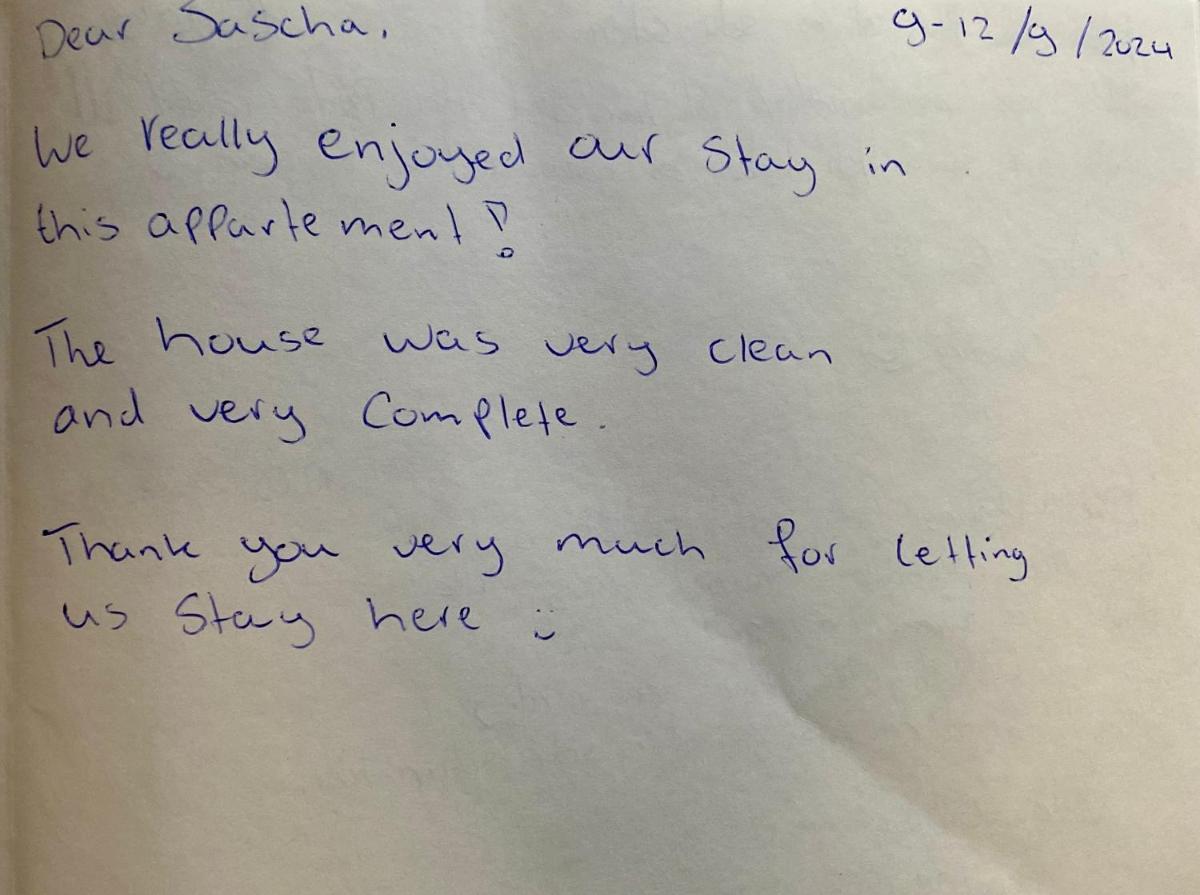 Dear Sascha, 9-12/9/2024
We really enjoyed our stay in
this appartement!
The house was very clean
and very complete.
Thank you very much for letting
us stay here :)